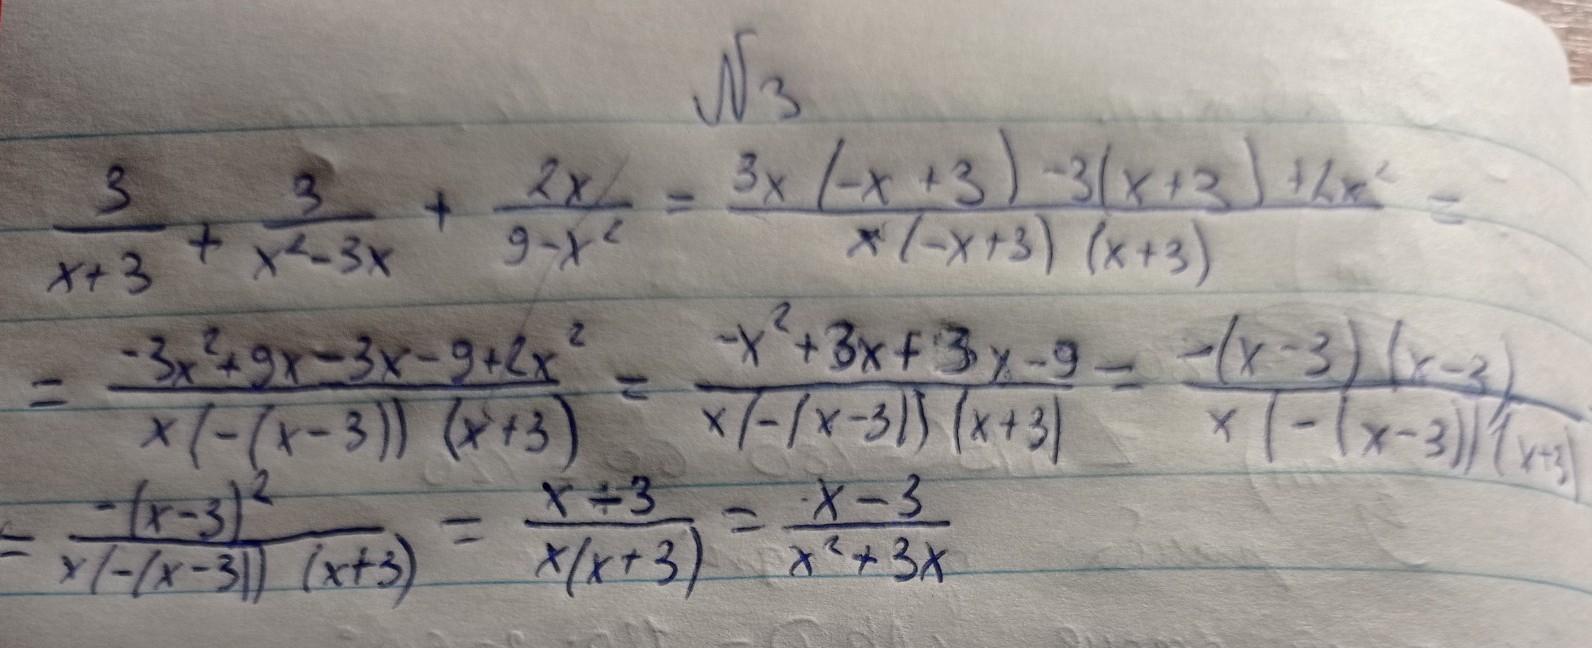 №3
3/(x+3) + 3/(x²-3x) + 2x/(9-x²) = (3x(-x+3)-3(x+3)+2x²)/(x(-x+3)(x+3)) =
= (-3x²+9x-3x-9+2x²)/(x(-(x-3))(x+3)) = (-x²+3x+3x-9)/(x(-(x-3))(x+3)) = (-(x-3)(x-3))/(x(-(x-3))(x+3))
= (-(x-3)²)/(x(-(x-3))(x+3)) = (x-3)/(x(x+3)) = (x-3)/(x²+3x)